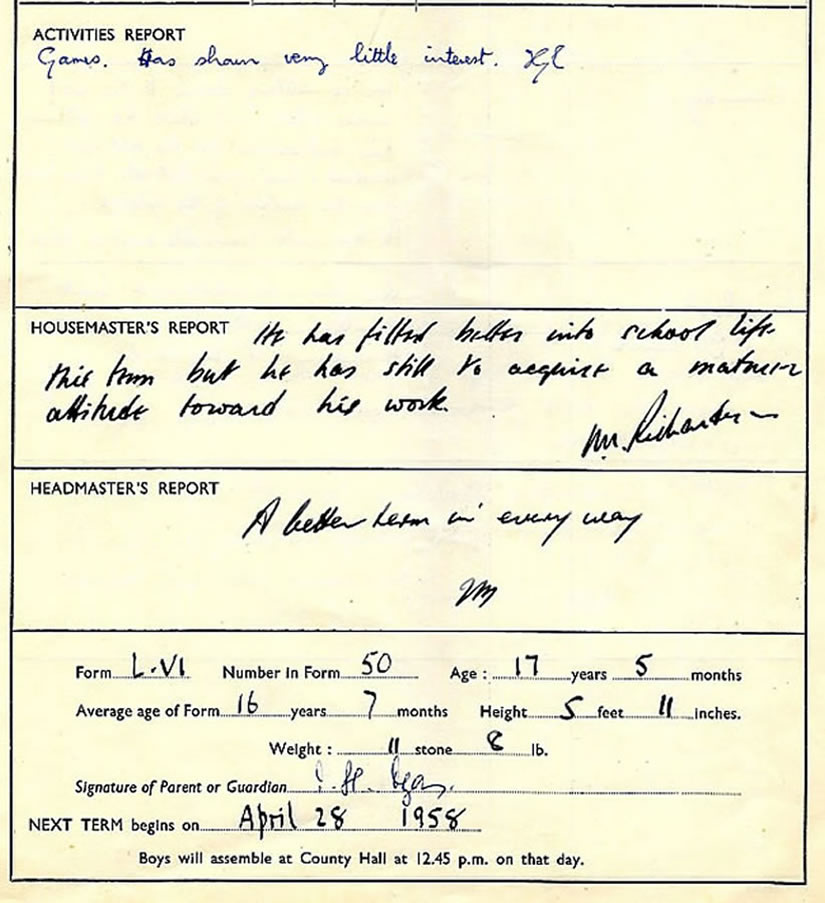 ACTIVITIES REPORT
Games. Has shown very little interest.
HOUSEMASTER'S REPORT He has fitted better into school life
this term but he has still to acquire a maturer
attitude toward his work.
HEADMASTER'S REPORT
A better term in every way
Form L.VI Number in Form 50 Age: 17 years 5 months
Average age of Form 16 years 7 months Height 5 feet 11 inches.
Weight: 11 stone 8 lb.
Signature of Parent or Guardian
NEXT TERM begins on April 28 1958
Boys will assemble at County Hall at 12.45 p.m. on that day.